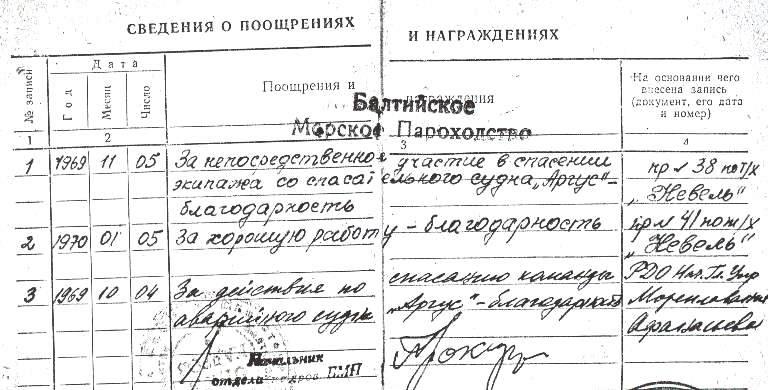 СВЕДЕНИЯ О ПООЩРЕНИЯХ И НАГРАЖДЕНИЯХ
№ записи
Дата
Год
Месяц
Число
Поощрения и награждения
На основании чего внесена запись (документ, его дата и номер)
Балтийское
Морское Пароходство
1 2 3 4
1 1969 11 05 За непосредственное участие в спасении пр № 38 по т/х
экипажа со спасательного судна „Аргус"- „Невель"
благодарность
2 1970 01 05 За хорошую работу - благодарность пр № 41 по т/х
„Невель"
3 1969 10 04 За действия по спасанию команды РДО Нач. Гл. Упр
аварийного судна „Аргус"-благодарность Мореплавания
Афанасьева
Начальник
отдела кадров БМП